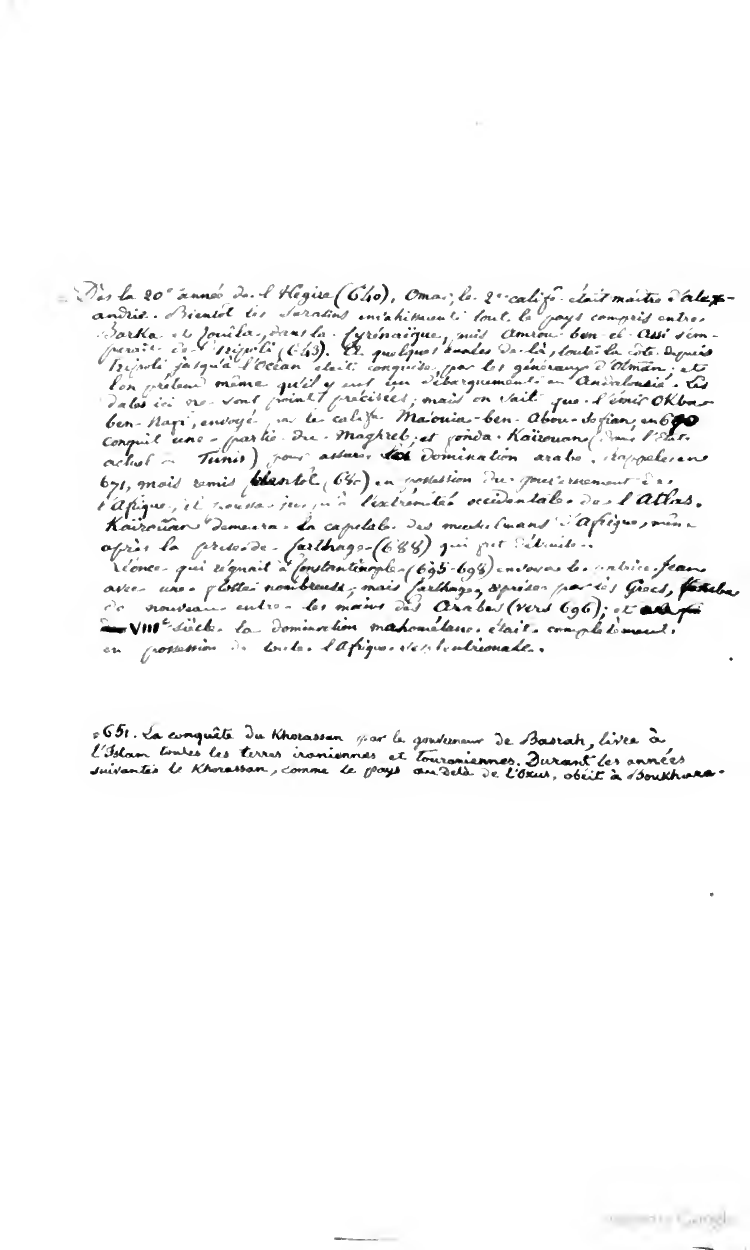 Dès la 20e année de l'Hégire (640), Omar, le 2e calife était maître d'Alex-
andrie. Bientôt les Sarasins envahissent tout le pays compris entre
Barka et Zouïla, dans la Cyrénaïque, puis Amrou-ben-el-Assi s'em-
parait de Tripoli (643). Et quelques années de là, toute la côte depuis
Tripoli jusqu'à l'Océan était conquise par les généraux d'Otman; et
l'on prétend même qu'il y eut un débarquement en Andalousie. Les
dates ici ne sont point précisées; mais on sait que l'émir Okba-
ben-Nafi, envoyé par le calife Maouia-ben-Abou-Sofian, en 6
conquit une partie du Maghreb, et fonda Kaïrouan (dans l'État
actuel Tunis) pour assurer domination arabe. Rappelé en
671, mais remis bientôt (6 ) en possession du gouvernement de
l'Afrique, il poussa jusqu'à l'extrémité occidentale de l'Atlas.
Kaïrouan demeura la capitale des musulmans d'Afrique, même
après la prise de Carthage (688) qui fut détruite.
Léonce qui régnait à Constantinople (695-698) envoya le patrice Jean
avec une flotte nombreuse; mais Carthage, reprise par les Grecs, tomba
de nouveau entre les mains des Arabes (vers 696); et
VIIIe siècle la domination mahométane était complètement
en possession de toute l'Afrique septentrionale.
651. La conquête du Khorassan par le gouverneur de Basrah, livra à
l'Islam toutes les terres iraniennes et touraniennes. Durant les années
suivantes le Khorassan, comme le pays au delà de l'Oxus, obéit à Boukhara.
Google